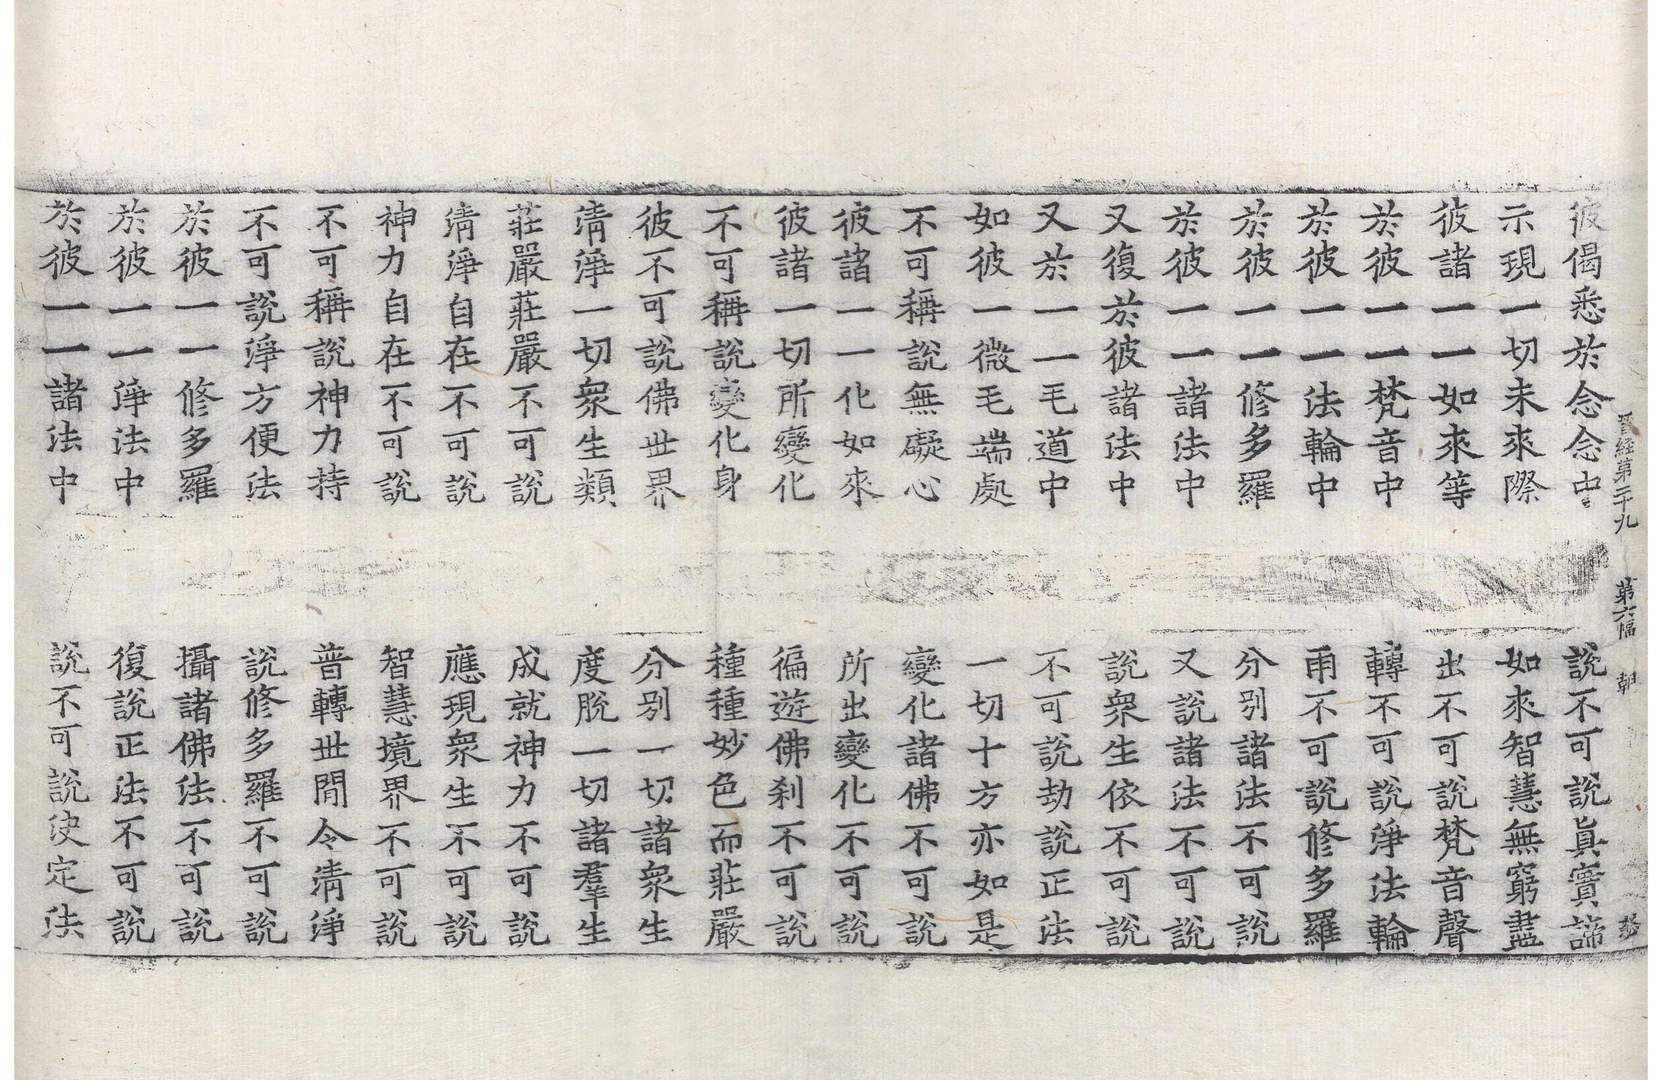 晋經第二十九 第六幅 朝
彼偈悉於念念中 說不可說眞實諦
示現一切未來際 如來智慧無窮盡
彼諸一一如來等 出不可說梵音聲
於彼一一梵音中 轉不可說淨法輪
於彼一一法輪中 雨不可說修多羅
於彼一一修多羅 分別諸法不可說
於彼一一諸法中 又說諸法不可說
又復於彼諸法中 說衆生依不可說
又於一一毛道中 不可說劫說正法
如彼一微毛端處 一切十方亦如是
不可稱說無礙心 變化諸佛不可說
彼諸一一化如來 所出變化不可說
彼諸一切所變化 徧遊佛刹不可說
不可稱說變化身 種種妙色而莊嚴
彼不可說佛世界 分別一切諸衆生
清淨一切衆生類 度脫一切諸羣生
莊嚴莊嚴不可說 成就神力不可說
清淨自在不可說 應現衆生不可說
神力自在不可說 智慧境界不可說
不可稱說神力持 普轉世間令清淨
不可說淨方便法 說修多羅不可說
於彼一一修多羅 攝諸佛法不可說
於彼一一淨法中 復說正法不可說
於彼一一諸法中 說不可說决定法